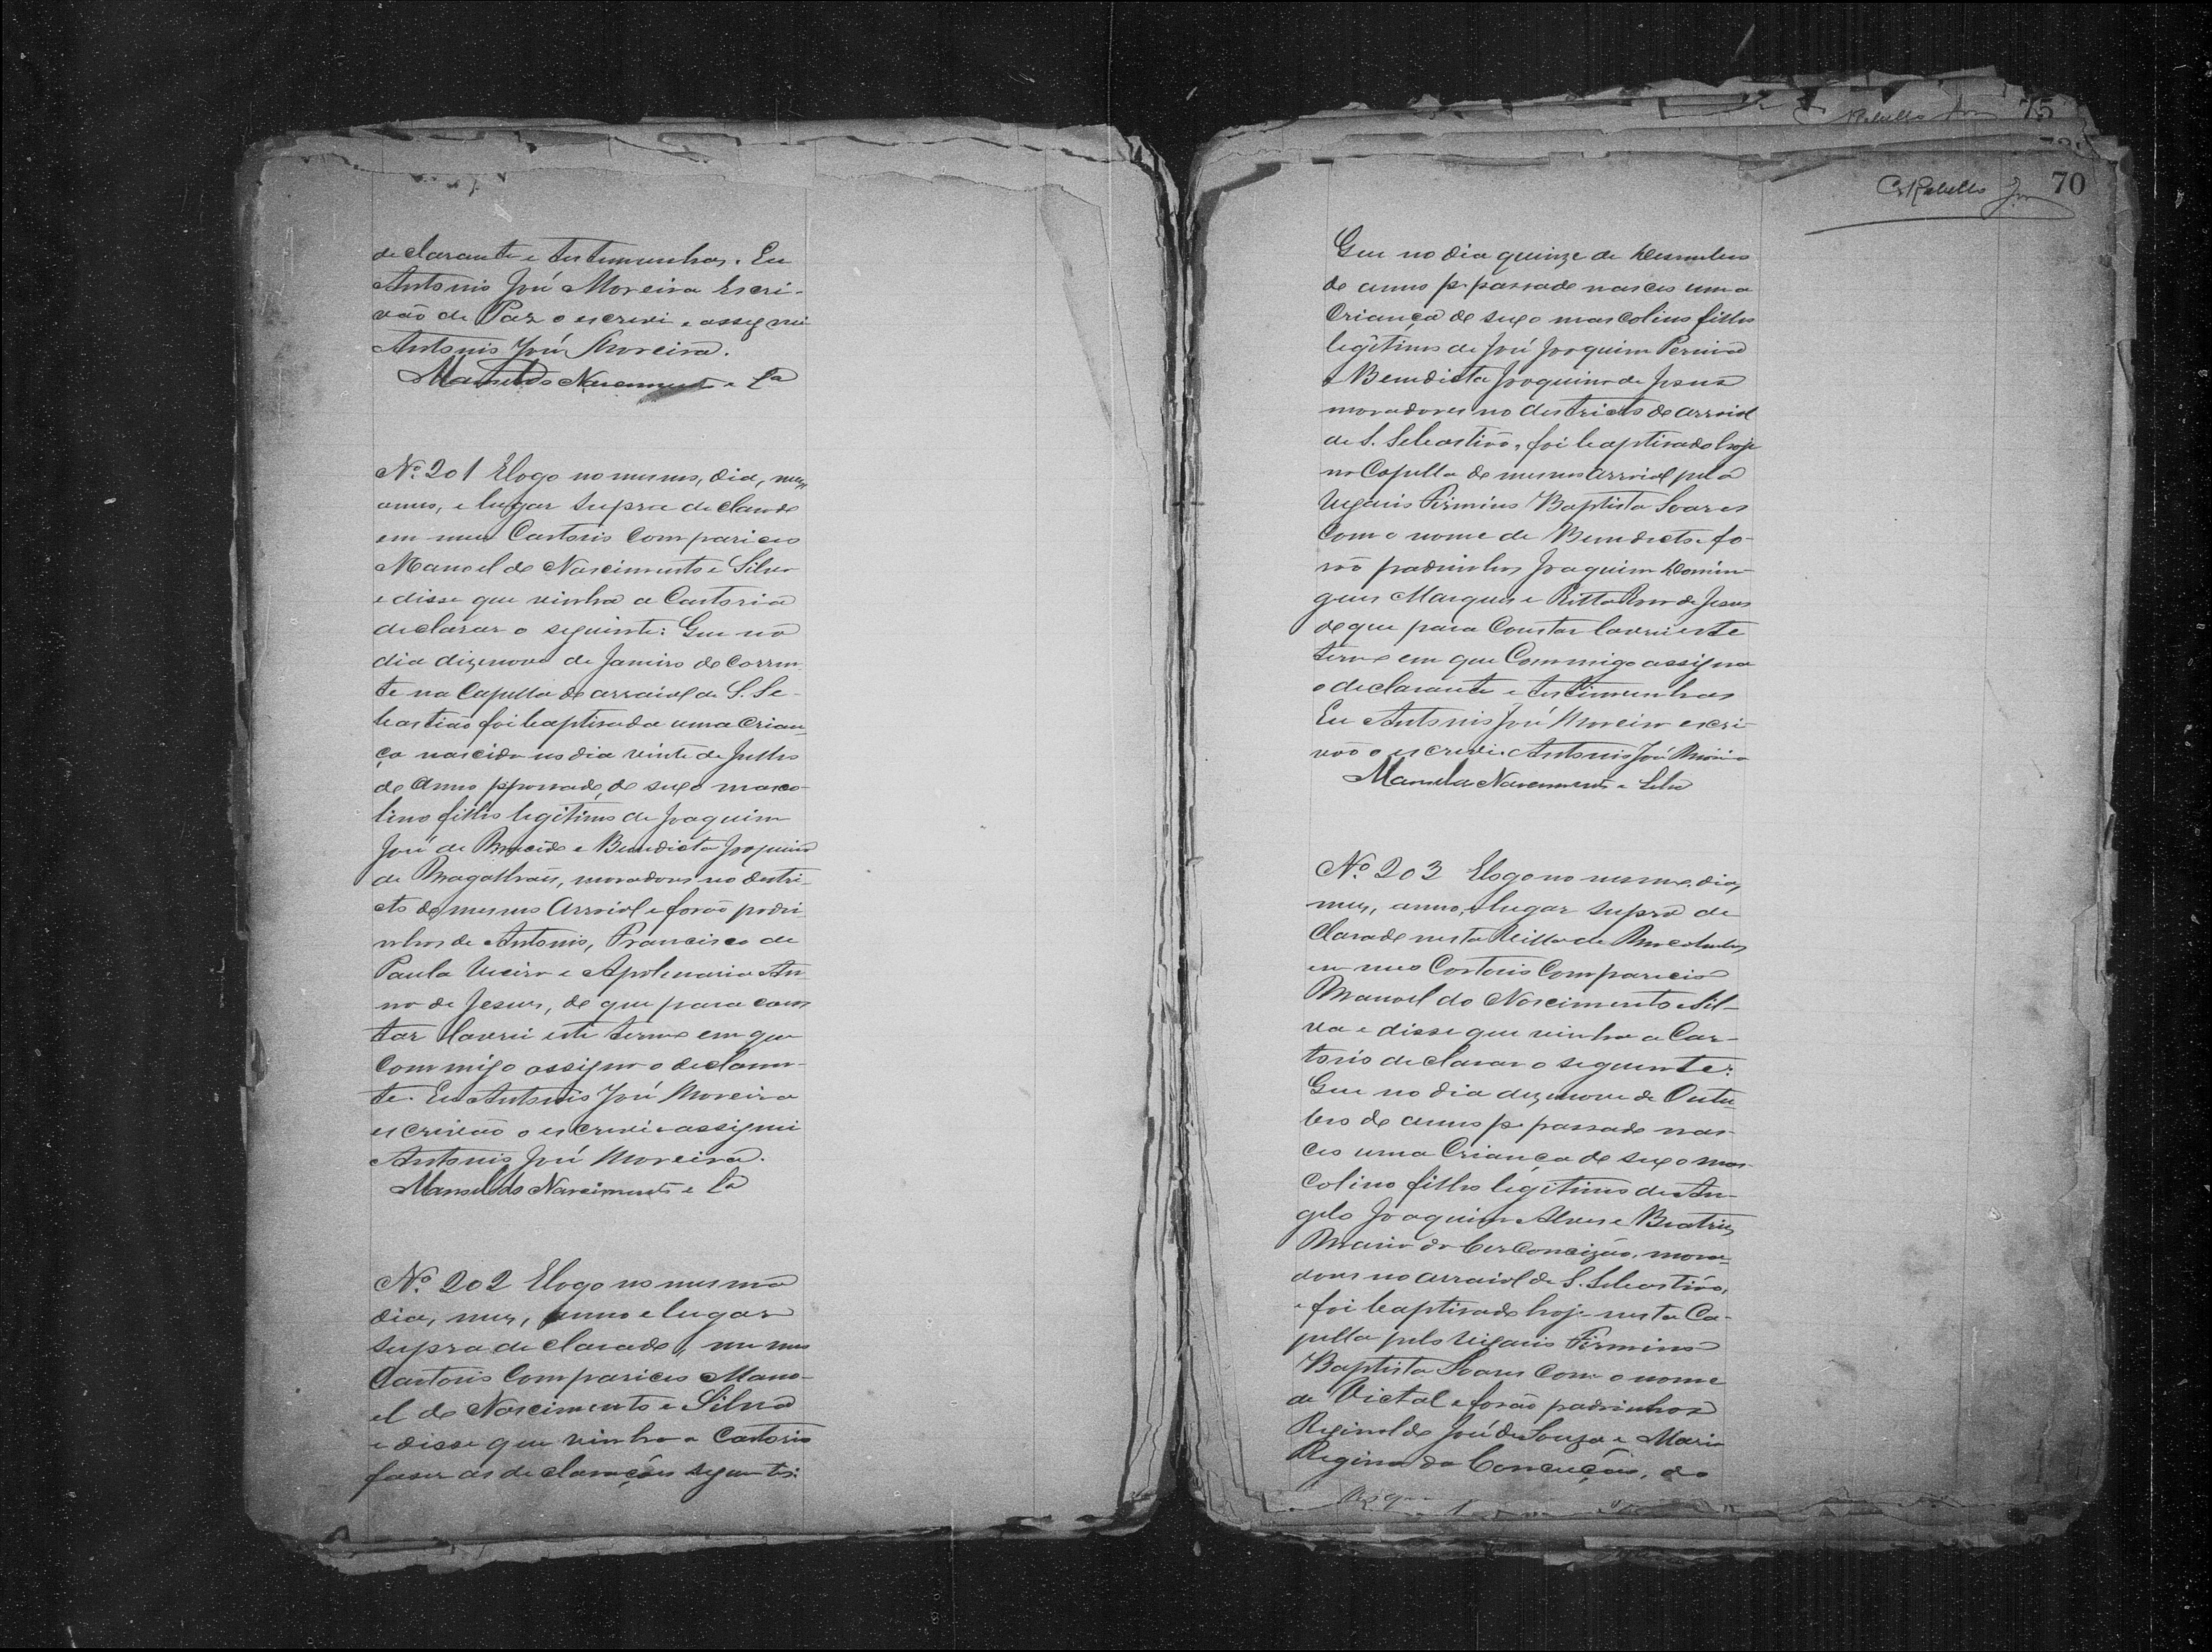 declarante e testemunhas. Eu
Antonio José Moreira Escri-
vão de Paz o escrevi e assignei
Antonio José Moreira.
Manoel do Nascimento e Sa
Nº 201 E logo no mesmo, dia, mez,
anno, e lugar supra declarado
em meu Cartorio Compareceo
Manoel do Nascimento e Silva
e disse que vinha a Cartorio
declarar o seguinte: Que no
dia dizenove de Janeiro do Corren
te na Capella do arraial de S. Se-
bastião foi baptisada uma Crian-
ça nascida no dia vinte de Julho
do Anno p passado, de sexo masco-
lino filho legitimo de Joaquim
José de e Benedicta Joaquina
de Magalhaes, moradores no destri-
cto do mesmo Arraial e forão padri
nhos de Antonio, Francisco de
Paula Vieira e Apolenaria An
na de Jesus, do que para cons
tar lavrei este termo em que
Commigo assigna o declaran-
te. Eu Antonio José Moreira
escrivão o escrevi e assignei
Antonio José Moreira.
Manoel do Nascimento e Sa
Nº 202 E logo no mesmo
dia, mez, anno e lugar
supra declarado, em meu
Cartorio Compareceo Mano-
el do Nascimento e Silva
e disse que vinha a Cartorio
faser as declarações seguintes:
75
C Rebello Jor 70
Que no dia quinze de Desembro
do anno p. passado nasceo uma
Criança de sexo mascolino filho
legitimo de José Joaquim Pereira
e Benedicta Joaquina de Jesus
moradores no destricto do arraial
de S. Sebastião, foi baptisado hoje
na Capella do mesmo Arraial pelo
Vigario Firmino Baptista Soares
Com o nome de Benedicto e fo-
rão padrinhos Joaquim Domin-
gues Marques e Ritta de Jesus
do que para Constar lavrei este
termo em que Commigo assigna
o declarante e testemunhas
Eu Antonio José Moreira escri-
vão o escrevi. Antonio José Moreira
Manoel do Nascimento e Silva
Nº 203 E logo no mesmo, dia,
mez, anno, e lugar supra de
clarado nesta Villa de
em meo Cartorio Compareceo
Manoel do Nascimento e Sil-
va e disse que vinha a Car-
torio declarar o seguinte:
Que no dia dezenove de Outu
bro do anno p. passado nas-
ceo uma Criança de sexo mas-
Colino filho legitimo de An-
gelo Joaquim Alves e Beatriz
Maria da Conceição, mora-
dores no arraial de S. Sebastião,
e foi baptisado hoje nesta Ca-
pella pelo Vigario Firmino
Baptista Soares Com o nome
de Victal e forão padrinhos
Reginaldo José de Souza e Maria
Regina da Conceição, do